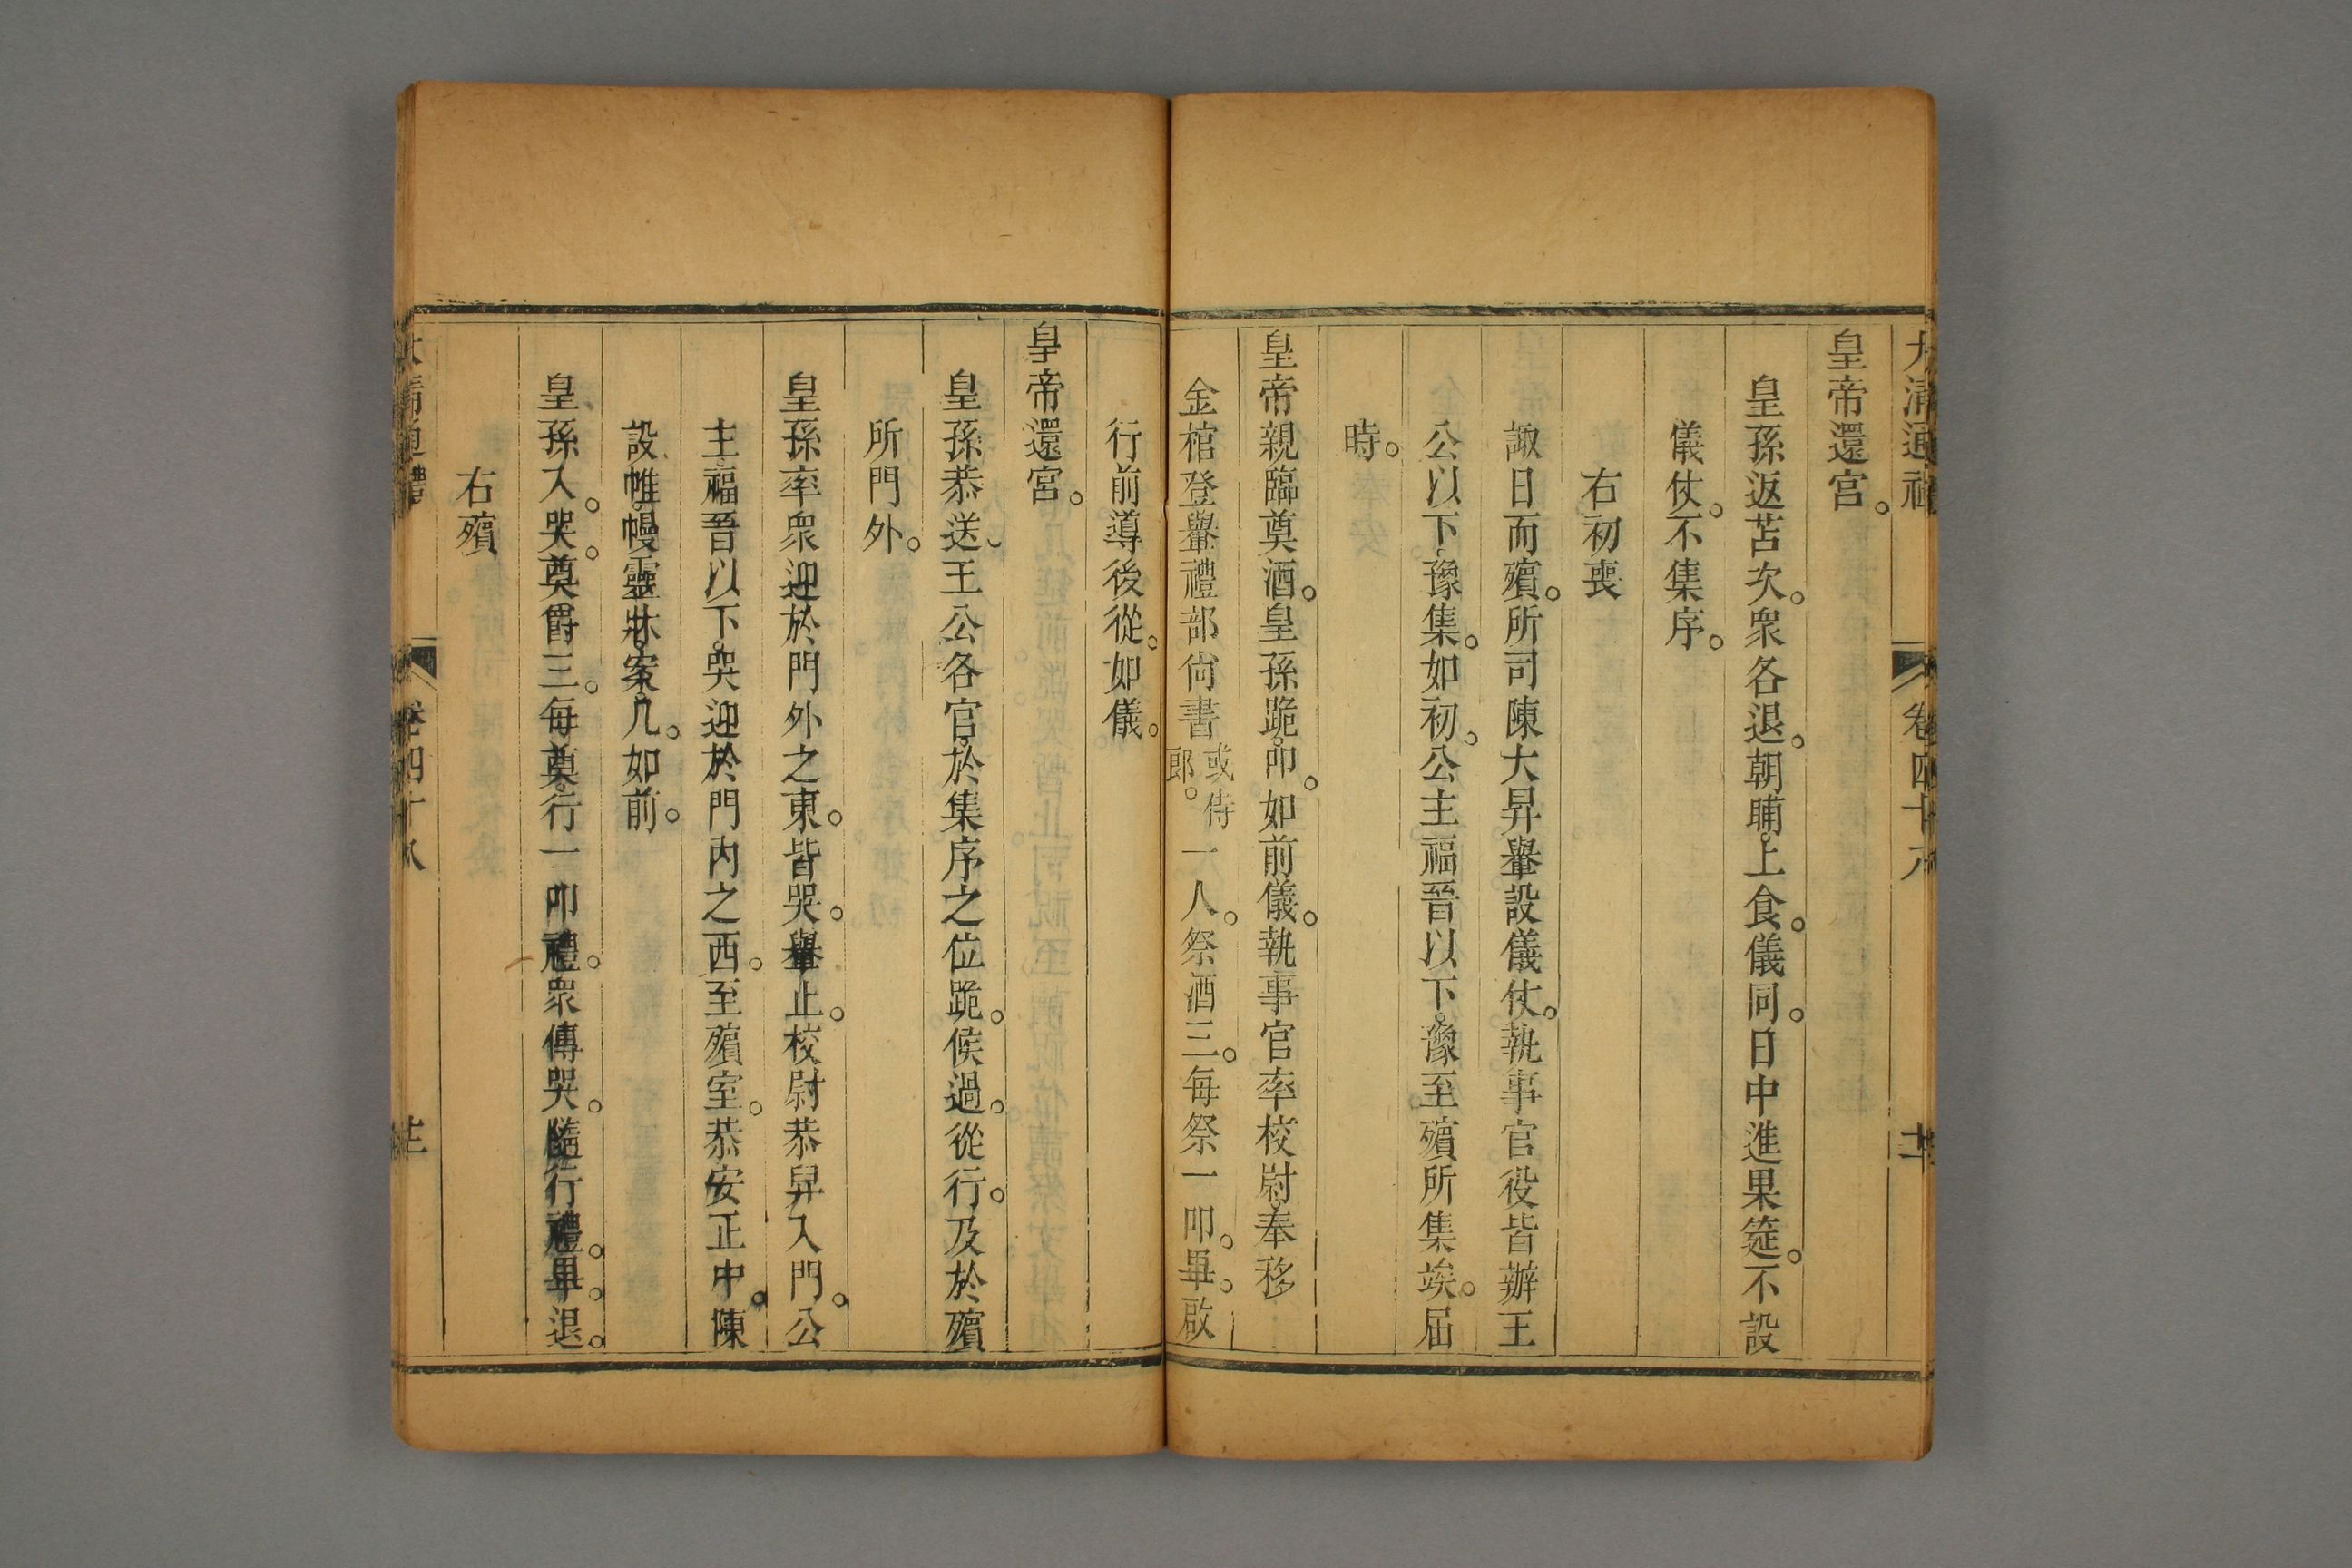 大清通禮 卷四十八
皇帝還宮。
皇孫返苫次。衆各退。朝晡上食。儀同。日中進果筵。不設
儀仗。不集序。
右初喪
諏日而殯。所司陳大昇轝設儀仗。執事官役皆辦王
公以下豫集。如初。公主福晉以下豫至殯所集竢。屆
時。
皇帝親臨奠酒。皇孫跪叩。如前儀。執事官率校尉奉移
金棺登轝禮部尙書或侍郎。一人。祭酒三。每祭一叩。畢。啟
行前導後從。如儀。
皇帝還宮。
皇孫恭送王公各官於集序之位跪。候過。從行。及於殯
所門外。
皇孫率衆迎於門外之東。皆哭。轝止。校尉恭昇入門。公
主福晉以下哭迎於門內之西。至殯室。恭安正中。陳
設帷幔靈牀案几。如前。
皇孫入。哭。奠爵三。每奠行一叩禮。衆傳哭。隨行禮。畢。退。
右殯
大清通禮 卷四十八